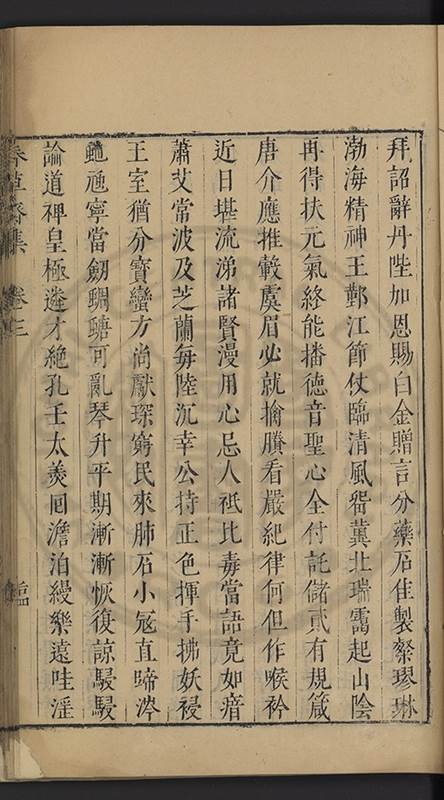 拜詔辭丹陛加恩賜白金贈言分藥石佳製粲璆琳
渤海精神王鄞江節仗臨清風徇冀北瑞靄起山陰
再得扶元氣終能播德音聖心全付託儲貳有規箴
唐介應推轂虞眉必就擒賸看嚴紀律何但作喉衿
近日堪流涕諸賢漫用心忌人祗比毒當語竟如瘖
蕭艾常波及芝蘭每陸沉幸公持正色揮手拂妖祲
王室猶分寶蠻方尚獻琛窮民來肺石小冦直蹄涔
虺虺寧當劒瑚璉可亂琴升平期漸漸恢復諒駸駸
論道禆皇極遴才絶孔壬太羮囘澹泊縵樂遠哇淫
春草齋集 卷之三